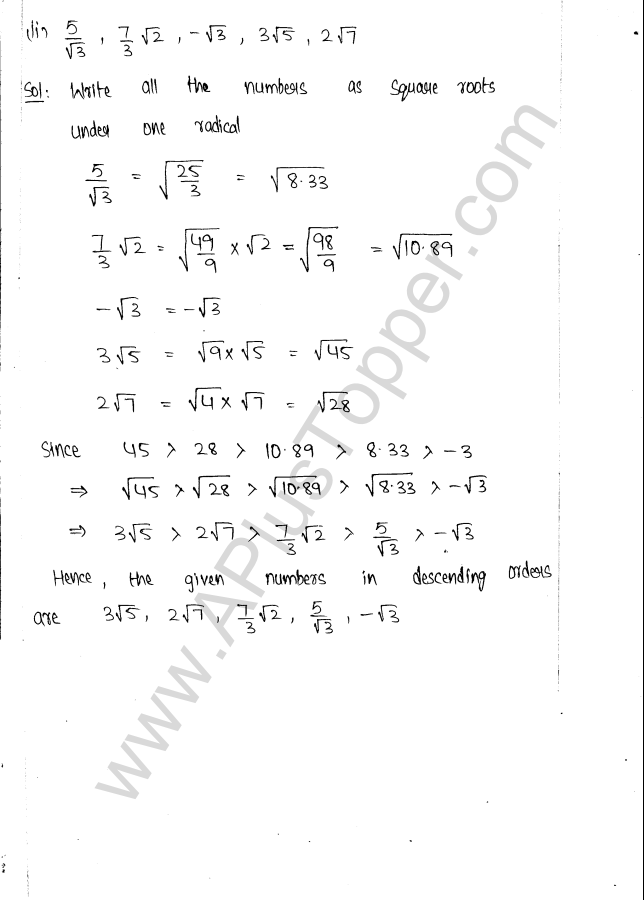 (ii) 5/√3 , 7/3 √2 , -√3 , 3√5 , 2√7
Sol: Write all the numbers as square roots
under one radical
5/√3 = √(25/3) = √8.33
7/3 √2 = √(49/9) × √2 = √(98/9) = √10.89
-√3 = -√3
3√5 = √9 × √5 = √45
2√7 = √4 × √7 = √28
Since 45 > 28 > 10.89 > 8.33 > -3
⇒ √45 > √28 > √10.89 > √8.33 > -√3
⇒ 3√5 > 2√7 > 7/3 √2 > 5/√3 > -√3
Hence, the given numbers in descending orders
are 3√5, 2√7, 7/3 √2, 5/√3, -√3
www.APlusTopper.com